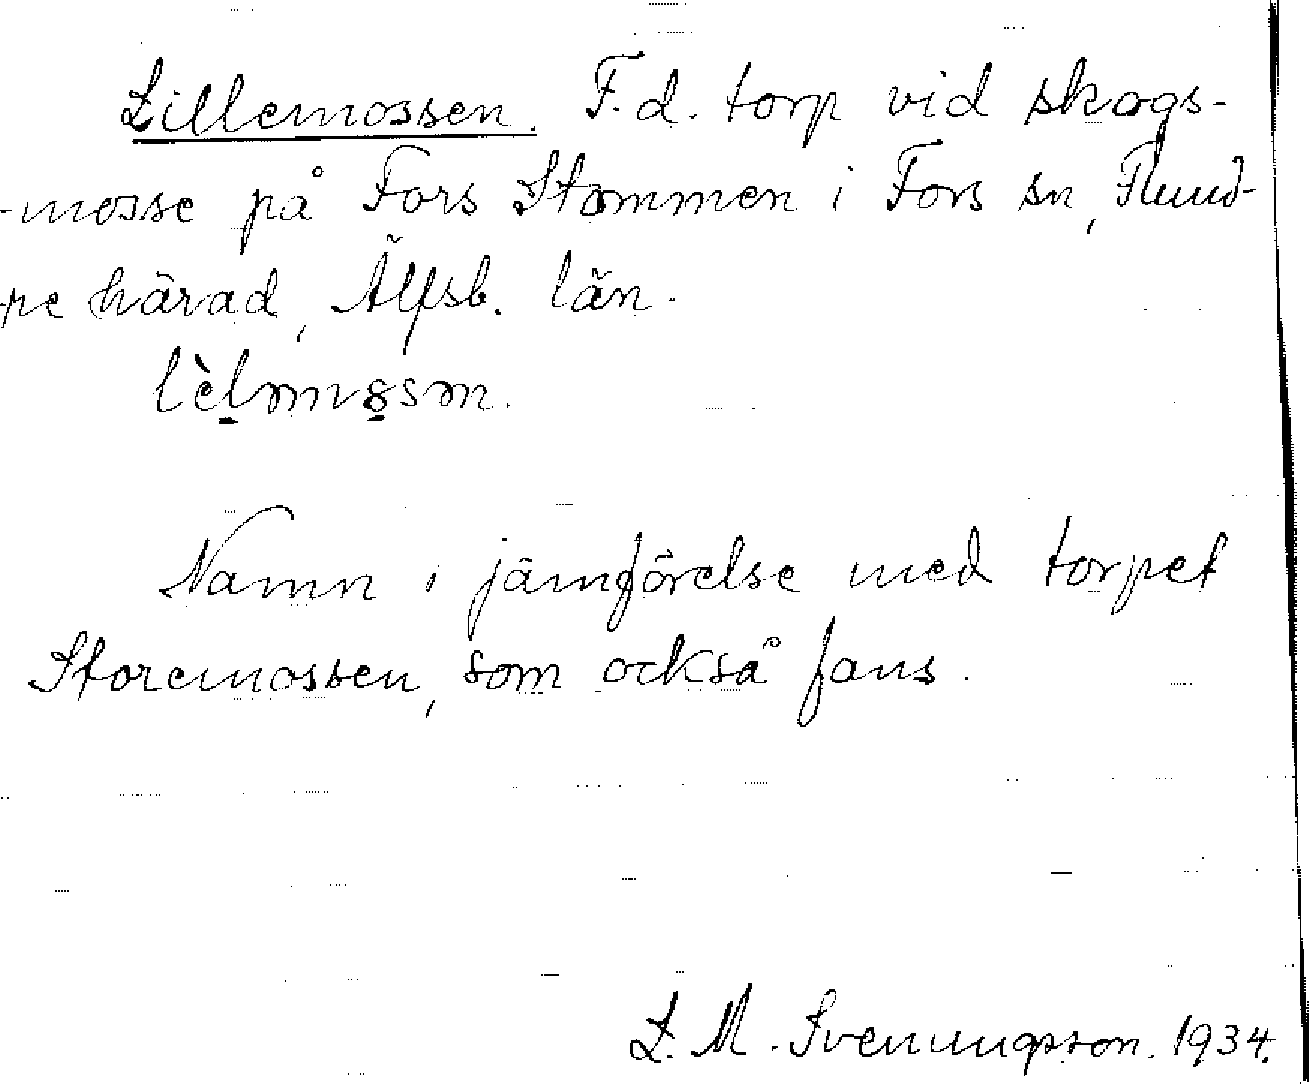 Lillemossen. F.d. torp vid skogs-
-mosse på Fors Stommen i Fors sn, Flund-
-re härad, Älfsb. län.
Namn i jämförelse med torpet
Storemossen, som också fans.
L. M. Svenungsson. 1934.